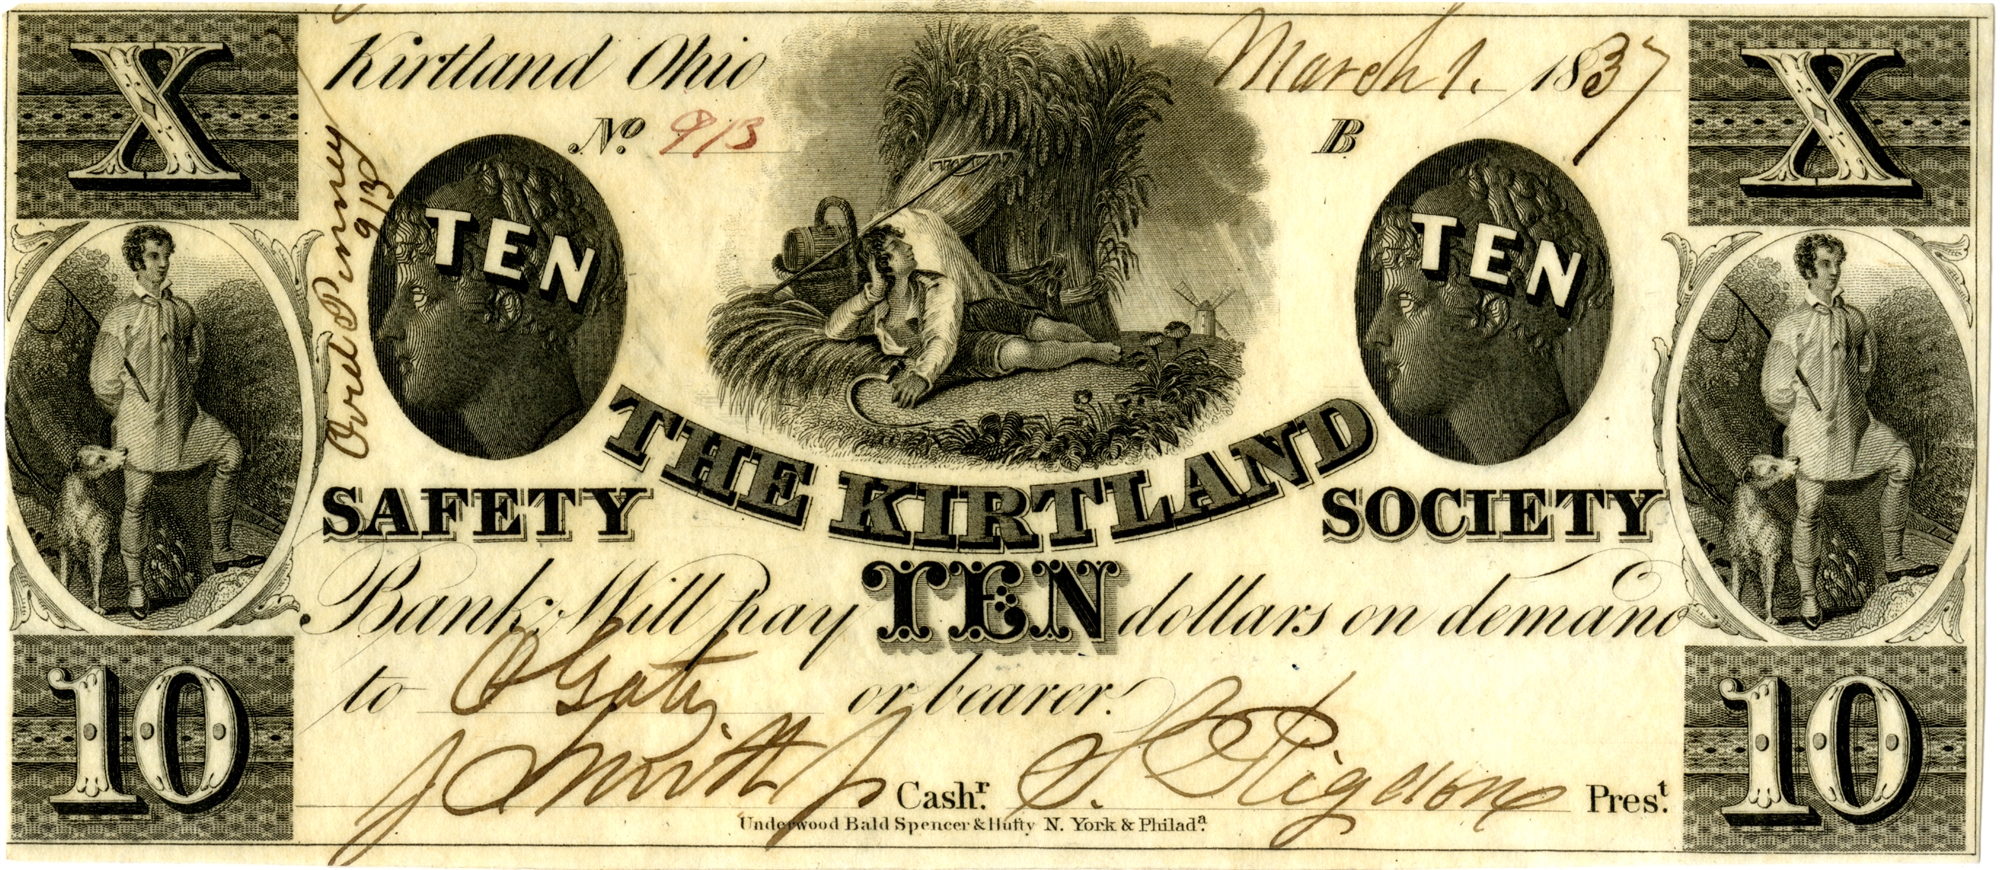 X X
Kirtland Ohio March 1. 1837
No. 913 B
Ovid Pinney
913
TEN TEN
THE KIRTLAND
SAFETY SOCIETY
Bank. Will pay TEN dollars on demand
to O Gates or bearer.
J Smith Jr Cashr. S. Rigdon Prest.
10 10
Underwood Bald Spencer & Hufty N. York & Philada.